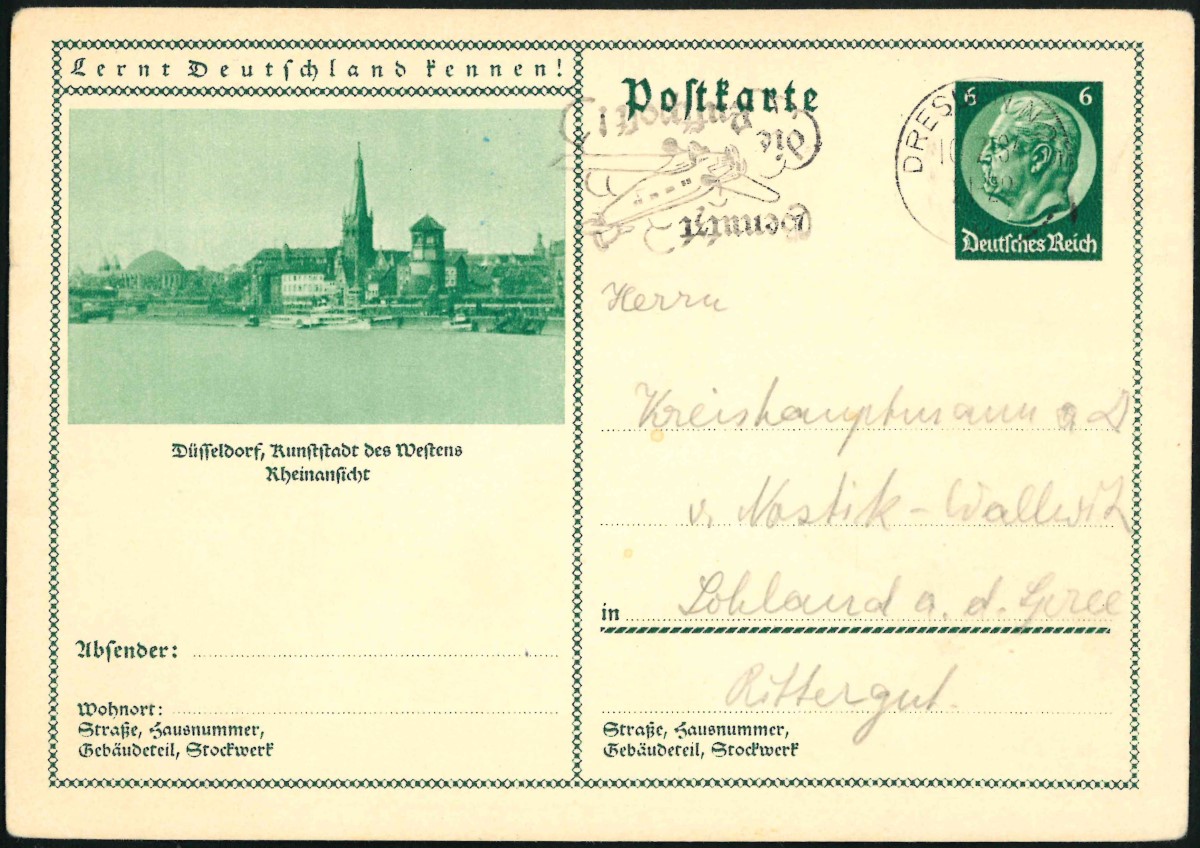 Lernt Deutschland kennen!
Düsseldorf, Kunststadt des Westens
Rheinansicht
Absender:
Wohnort:
Straße, Hausnummer,
Gebäudeteil, Stockwerk
Postkarte
Benutzt
die
Luftpost!
DRESDEN
6 6
Deutsches Reich
Herrn
Kreishauptmann a D
v. Nostik-Wallwitz
in Sohland a. d. Spree
Rittergut.
Straße, Hausnummer,
Gebäudeteil, Stockwerk